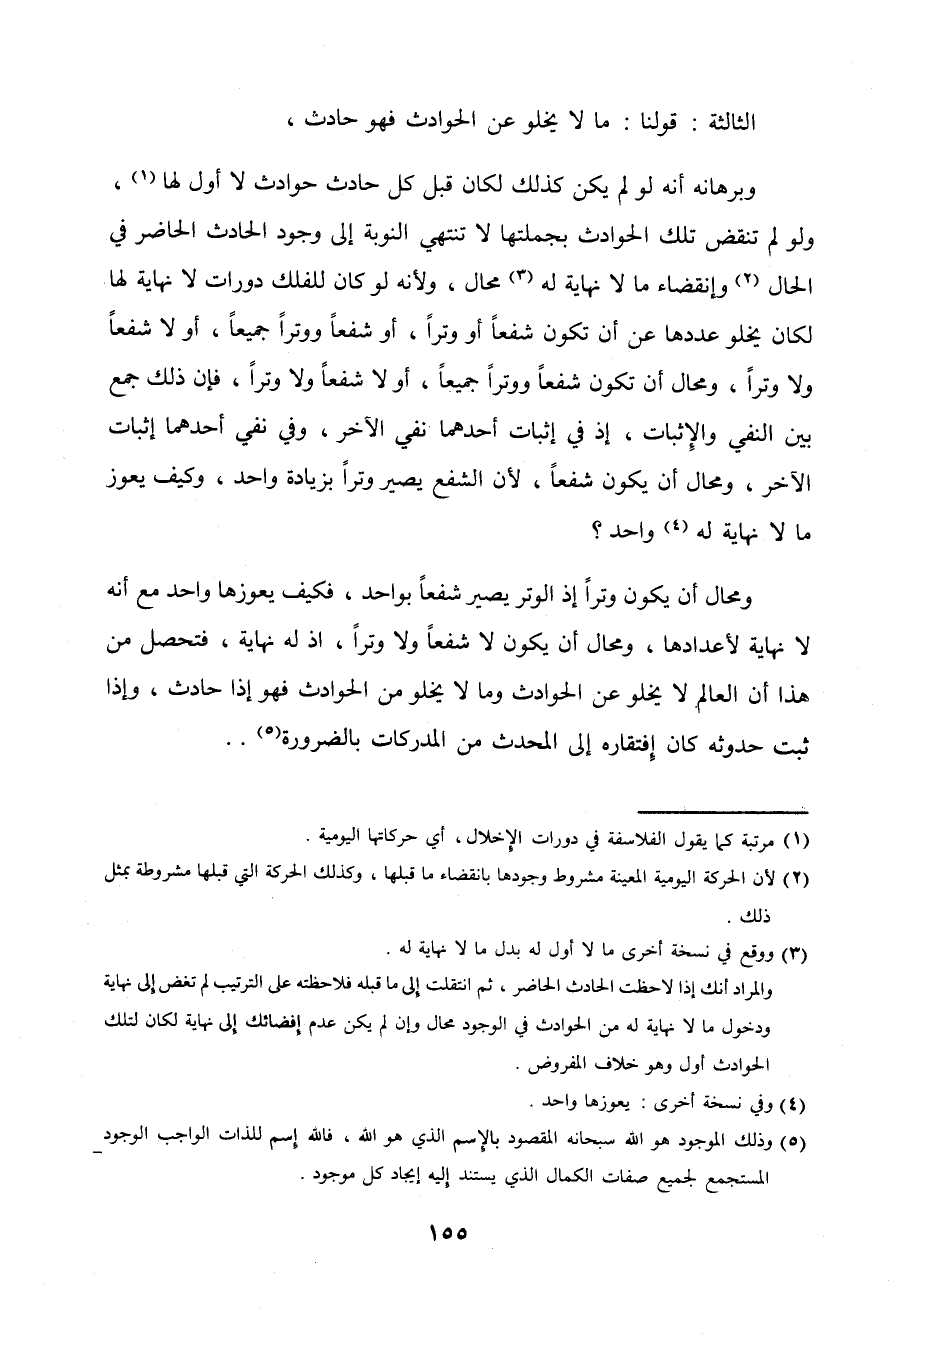 الثالثة : قولنا : ما لا يخلو عن الحوادث فهو حادث ،
وبرهانه أنه لو لم يكن كذلك لكان قبل كل حادث حوادث لا أول لها (١) ،
ولو لم تنقض تلك الحوادث بجملتها لا تنتهي النوبة إلى وجود الحادث الحاضر في
الحال (٢) وإنقضاء ما لا نهاية له (٣) محال ، ولأنه لو كان للفلك دورات لا نهاية لها
لكان يخلو عددها عن أن تكون شفعاً أو وتراً ، أو شفعاً ووتراً جميعاً ، أو لا شفعاً
ولا وتراً ، ومحال أن تكون شفعاً ووتراً جميعاً ، أو لا شفعاً ولا وتراً ، فإن ذلك جمع
بين النفي والإثبات ، إذ في إثبات أحدهما نفي الآخر ، وفي نفي أحدهما إثبات
الآخر ، ومحال أن يكون شفعاً ، لأن الشفع يصير وتراً بزيادة واحد ، وكيف يعوز
ما لا نهاية له (٤) واحد ؟
ومحال أن يكون وتراً إذ الوتر يصير شفعاً بواحد ، فكيف يعوزها واحد مع أنه
لا نهاية لأعدادها ، ومحال أن يكون لا شفعاً ولا وتراً ، اذ له نهاية ، فتحصل من
هذا أن العالم لا يخلو عن الحوادث وما لا يخلو من الحوادث فهو إذا حادث ، وإذا
ثبت حدوثه كان إفتقاره إلى المحدث من المدركات بالضرورة(٥) . .
(١) مرتبة كما يقول الفلاسفة في دورات الإخلال ، أي حركاتها اليومية .
(٢) لأن الحركة اليومية المعينة مشروط وجودها بانقضاء ما قبلها ، وكذلك الحركة التي قبلها مشروطة بمثل
ذلك .
(٣) ووقع في نسخة أخرى ما لا أول له بدل ما لا نهاية له .
والمراد أنك إذا لاحظت الحادث الحاضر ، ثم انتقلت إلى ما قبله فلاحظته على الترتيب لم تغض إلى نهاية
ودخول ما لا نهاية له من الحوادث في الوجود محال وإن لم يكن عدم إفضائك إلى نهاية لكان لتلك
الحوادث أول وهو خلاف المفروض .
(٤) وفي نسخة أخرى : يعوزها واحد .
(٥) وذلك الموجود هو الله سبحانه المقصود بالإسم الذي هو الله ، فالله إسم للذات الواجب الوجود
المستجمع لجميع صفات الكمال الذي يستند إليه إيجاد كل موجود .
١٥٥